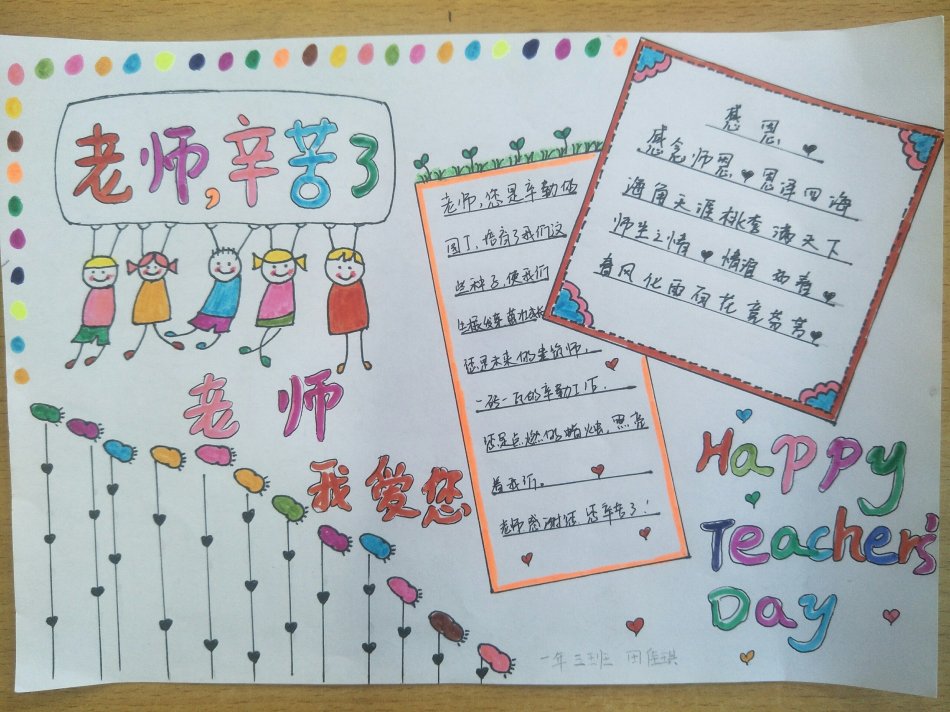 老师,辛苦了
老师
我爱您
老师,您是辛勤的
园丁,培育了我们这
些种子,使我们
生根发芽茁壮成长
您是未来的建筑师,
一砖一瓦的辛勤工作.
您是点燃的蜡烛,照亮
着我们。
老师感谢您 您辛苦了!
感恩
感念师恩 恩泽四海
海角天涯桃李满天下
师生之情 情谊
春风化雨百花竞芬芳
Happy
Teacher's
Day
一年三班 田佳琪